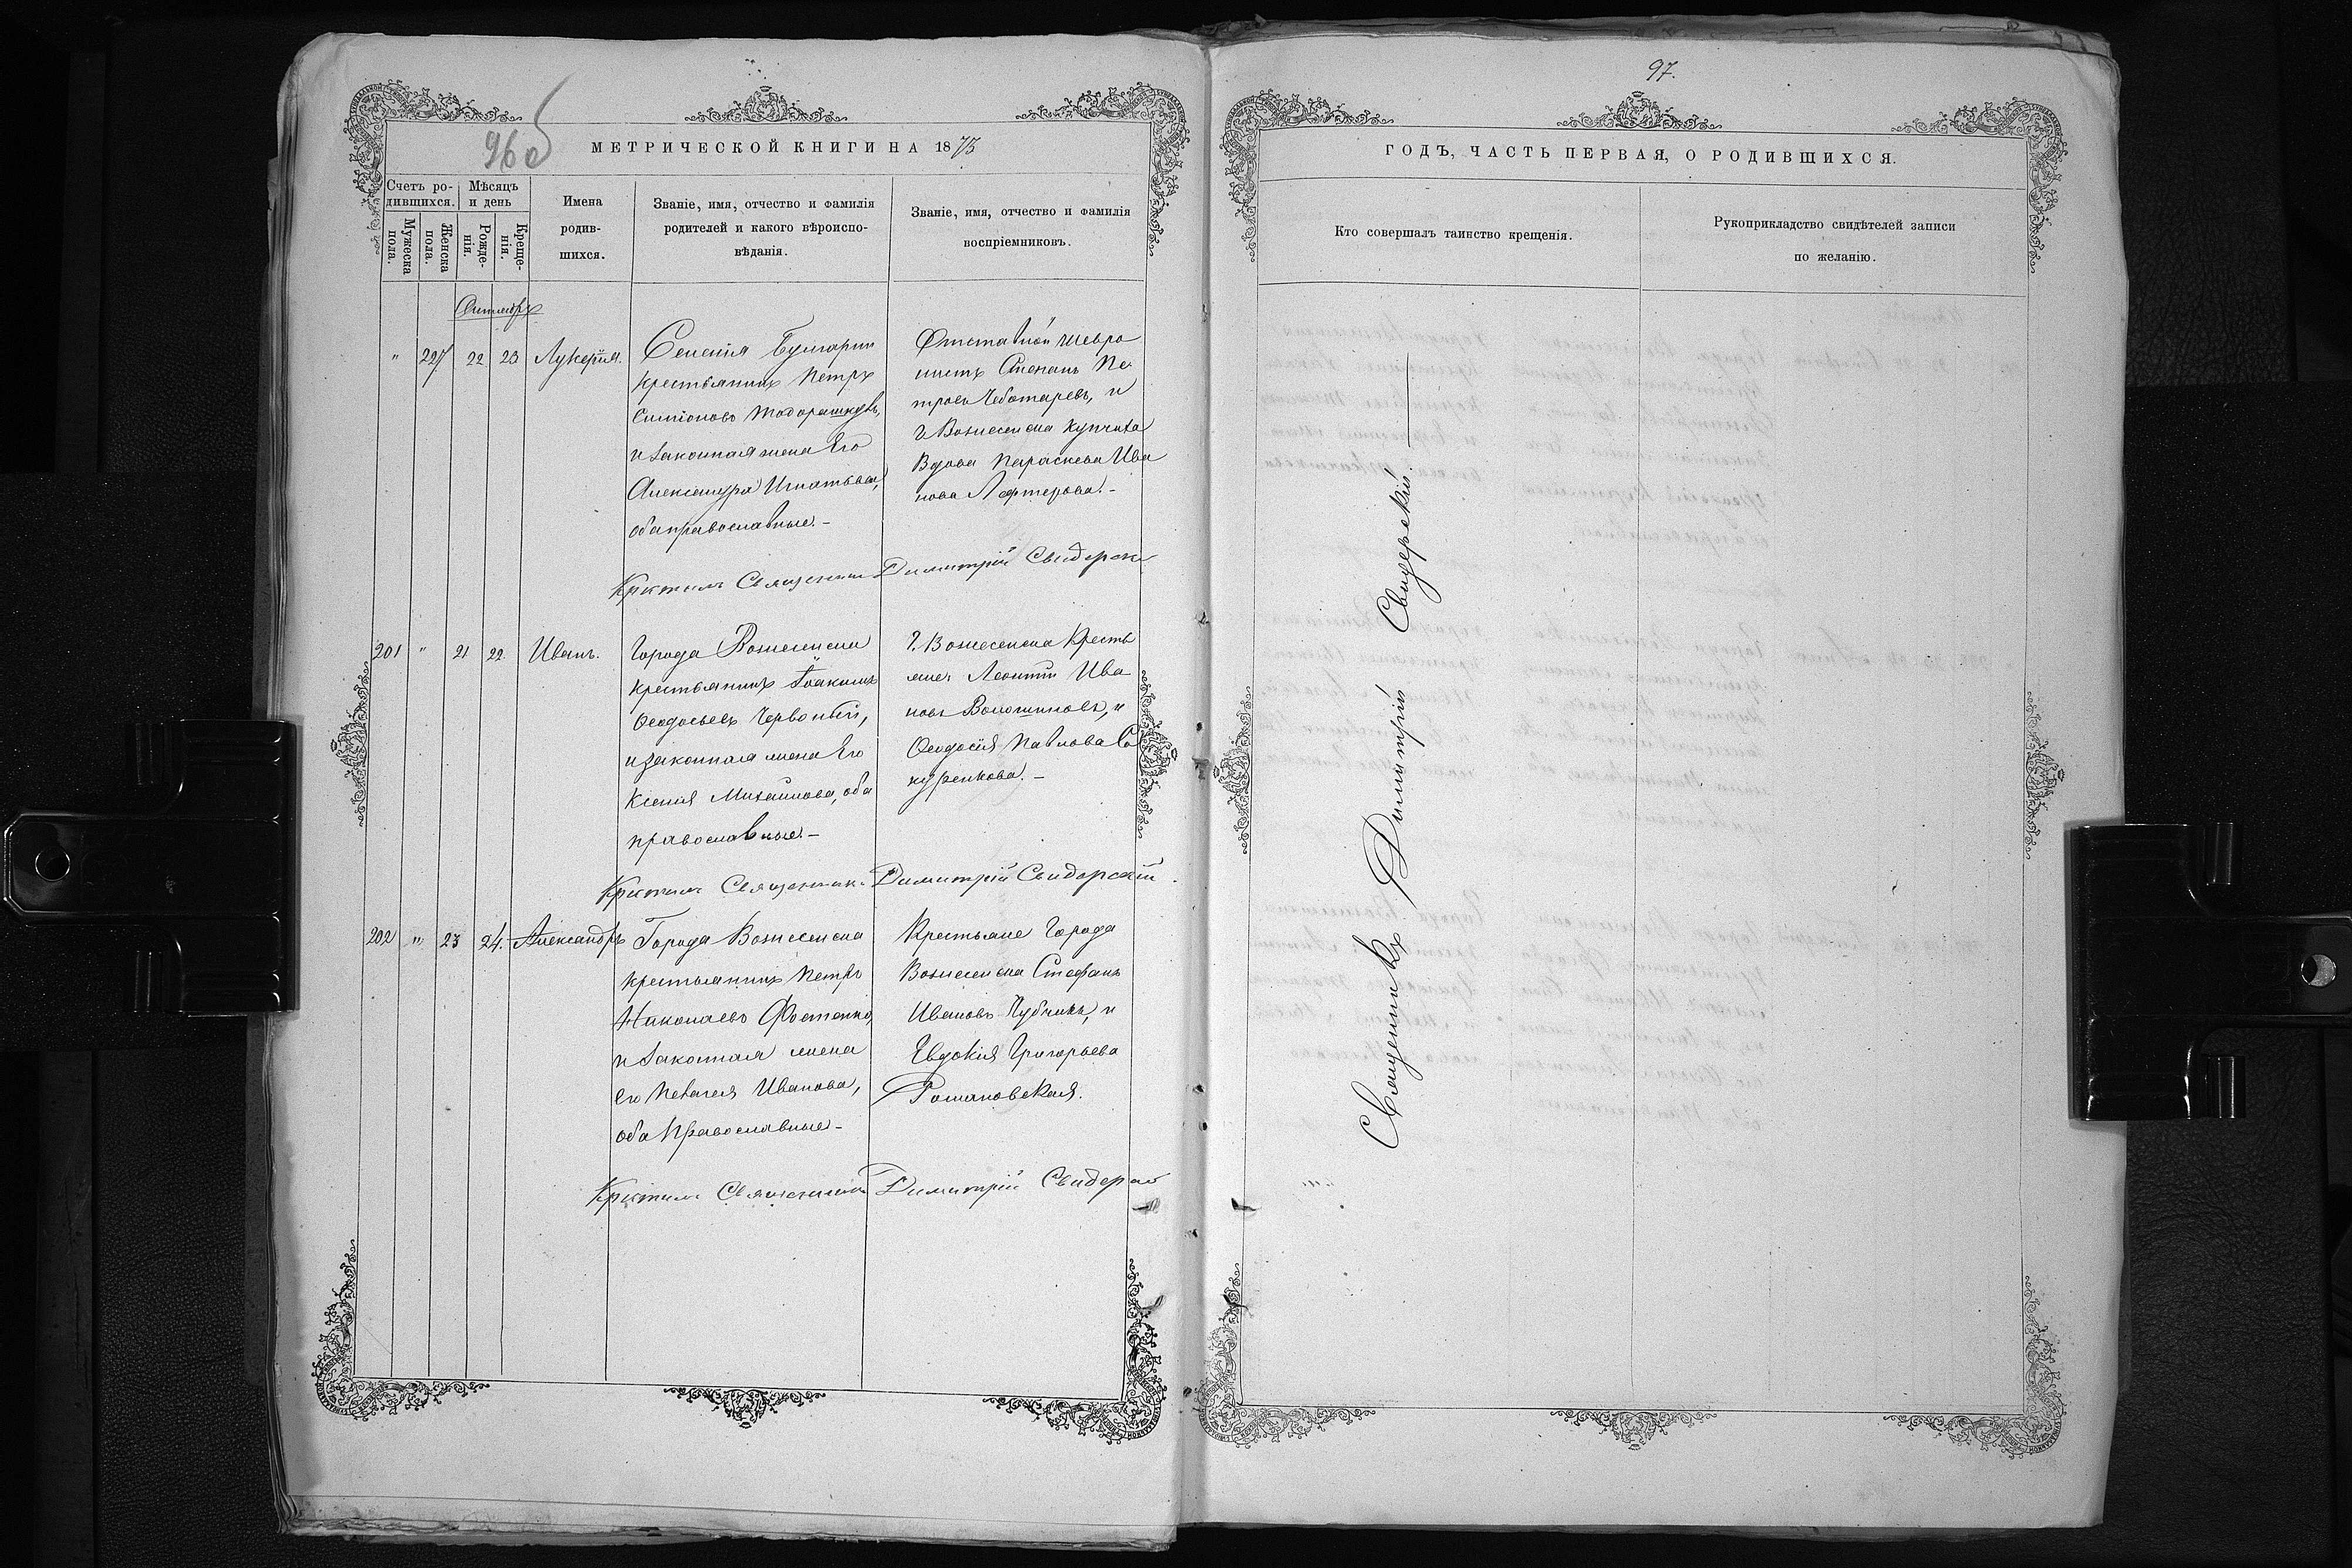 96 об
МЕТРИЧЕСКОЙ КНИГИ НА 1873
Счетъ ро-
дившихся.
Мѣсяцъ
и день
Мужеска
пола.
Женска
пола.
Рожде-
нія.
Креще-
нія.
Имена
родив-
шихся.
Званіе, имя, отчество и фамилія
родителей и какого вѣроиспо-
вѣданія.
Званіе, имя, отчество и фамилія
воспріемниковъ.
" 227 22 23 Лукерія.
крестьянинъ Петръ
Симіоновъ Тодорашковъ,
и законная жена Его
Александра Игнатьева,
оба православные.-
Отставной шевро
нистъ Степанъ Пе
тровъ Чеботаревъ, и
г. Вознесенска купчиха
Вдова Параскева Ива
нова Лефтерова.-
Крестилъ Священникъ Димитрій Свидерск
201 " 21 22 Иванъ.
Города Вознесенска
крестьянинъ Іоакимъ
Ѳеодосьевъ Червоный,
и законная жена Его
Ксенія Михайлова, оба
православные.-
г. Вознесенска Кресть
яне: Леонтій Ива
новъ Волошиновъ, и
Ѳеодосія Павлова Со
куренкова.-
Крестилъ Священникъ Димитрій Свидерскій
202 " 23 24. Александръ
Города Вознесенска
крестьянинъ Петръ
Николаевъ Фостенко,
и законная жена
его Пелагея Иванова,
оба Православные-
Крестьяне Города
Вознесенска Стефанъ
Ивановъ Чубчикъ, и
Евдокія Григорьева
Романовская.
Крестилъ Священникъ Димитрій Свидерск
97.
ГОДЪ, ЧАСТЬ ПЕРВАЯ, О РОДИВШИХСЯ.
Кто совершалъ таинство крещенія.
Рукоприкладство свидѣтелей записи
по желанію.
Священникъ Димитрій Свидерскій.